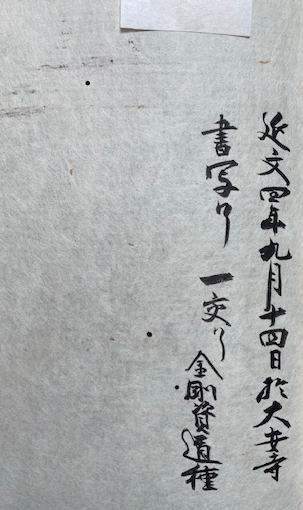 延文四年九月十四日於大安寺
書写了 一交了
金剛資道種